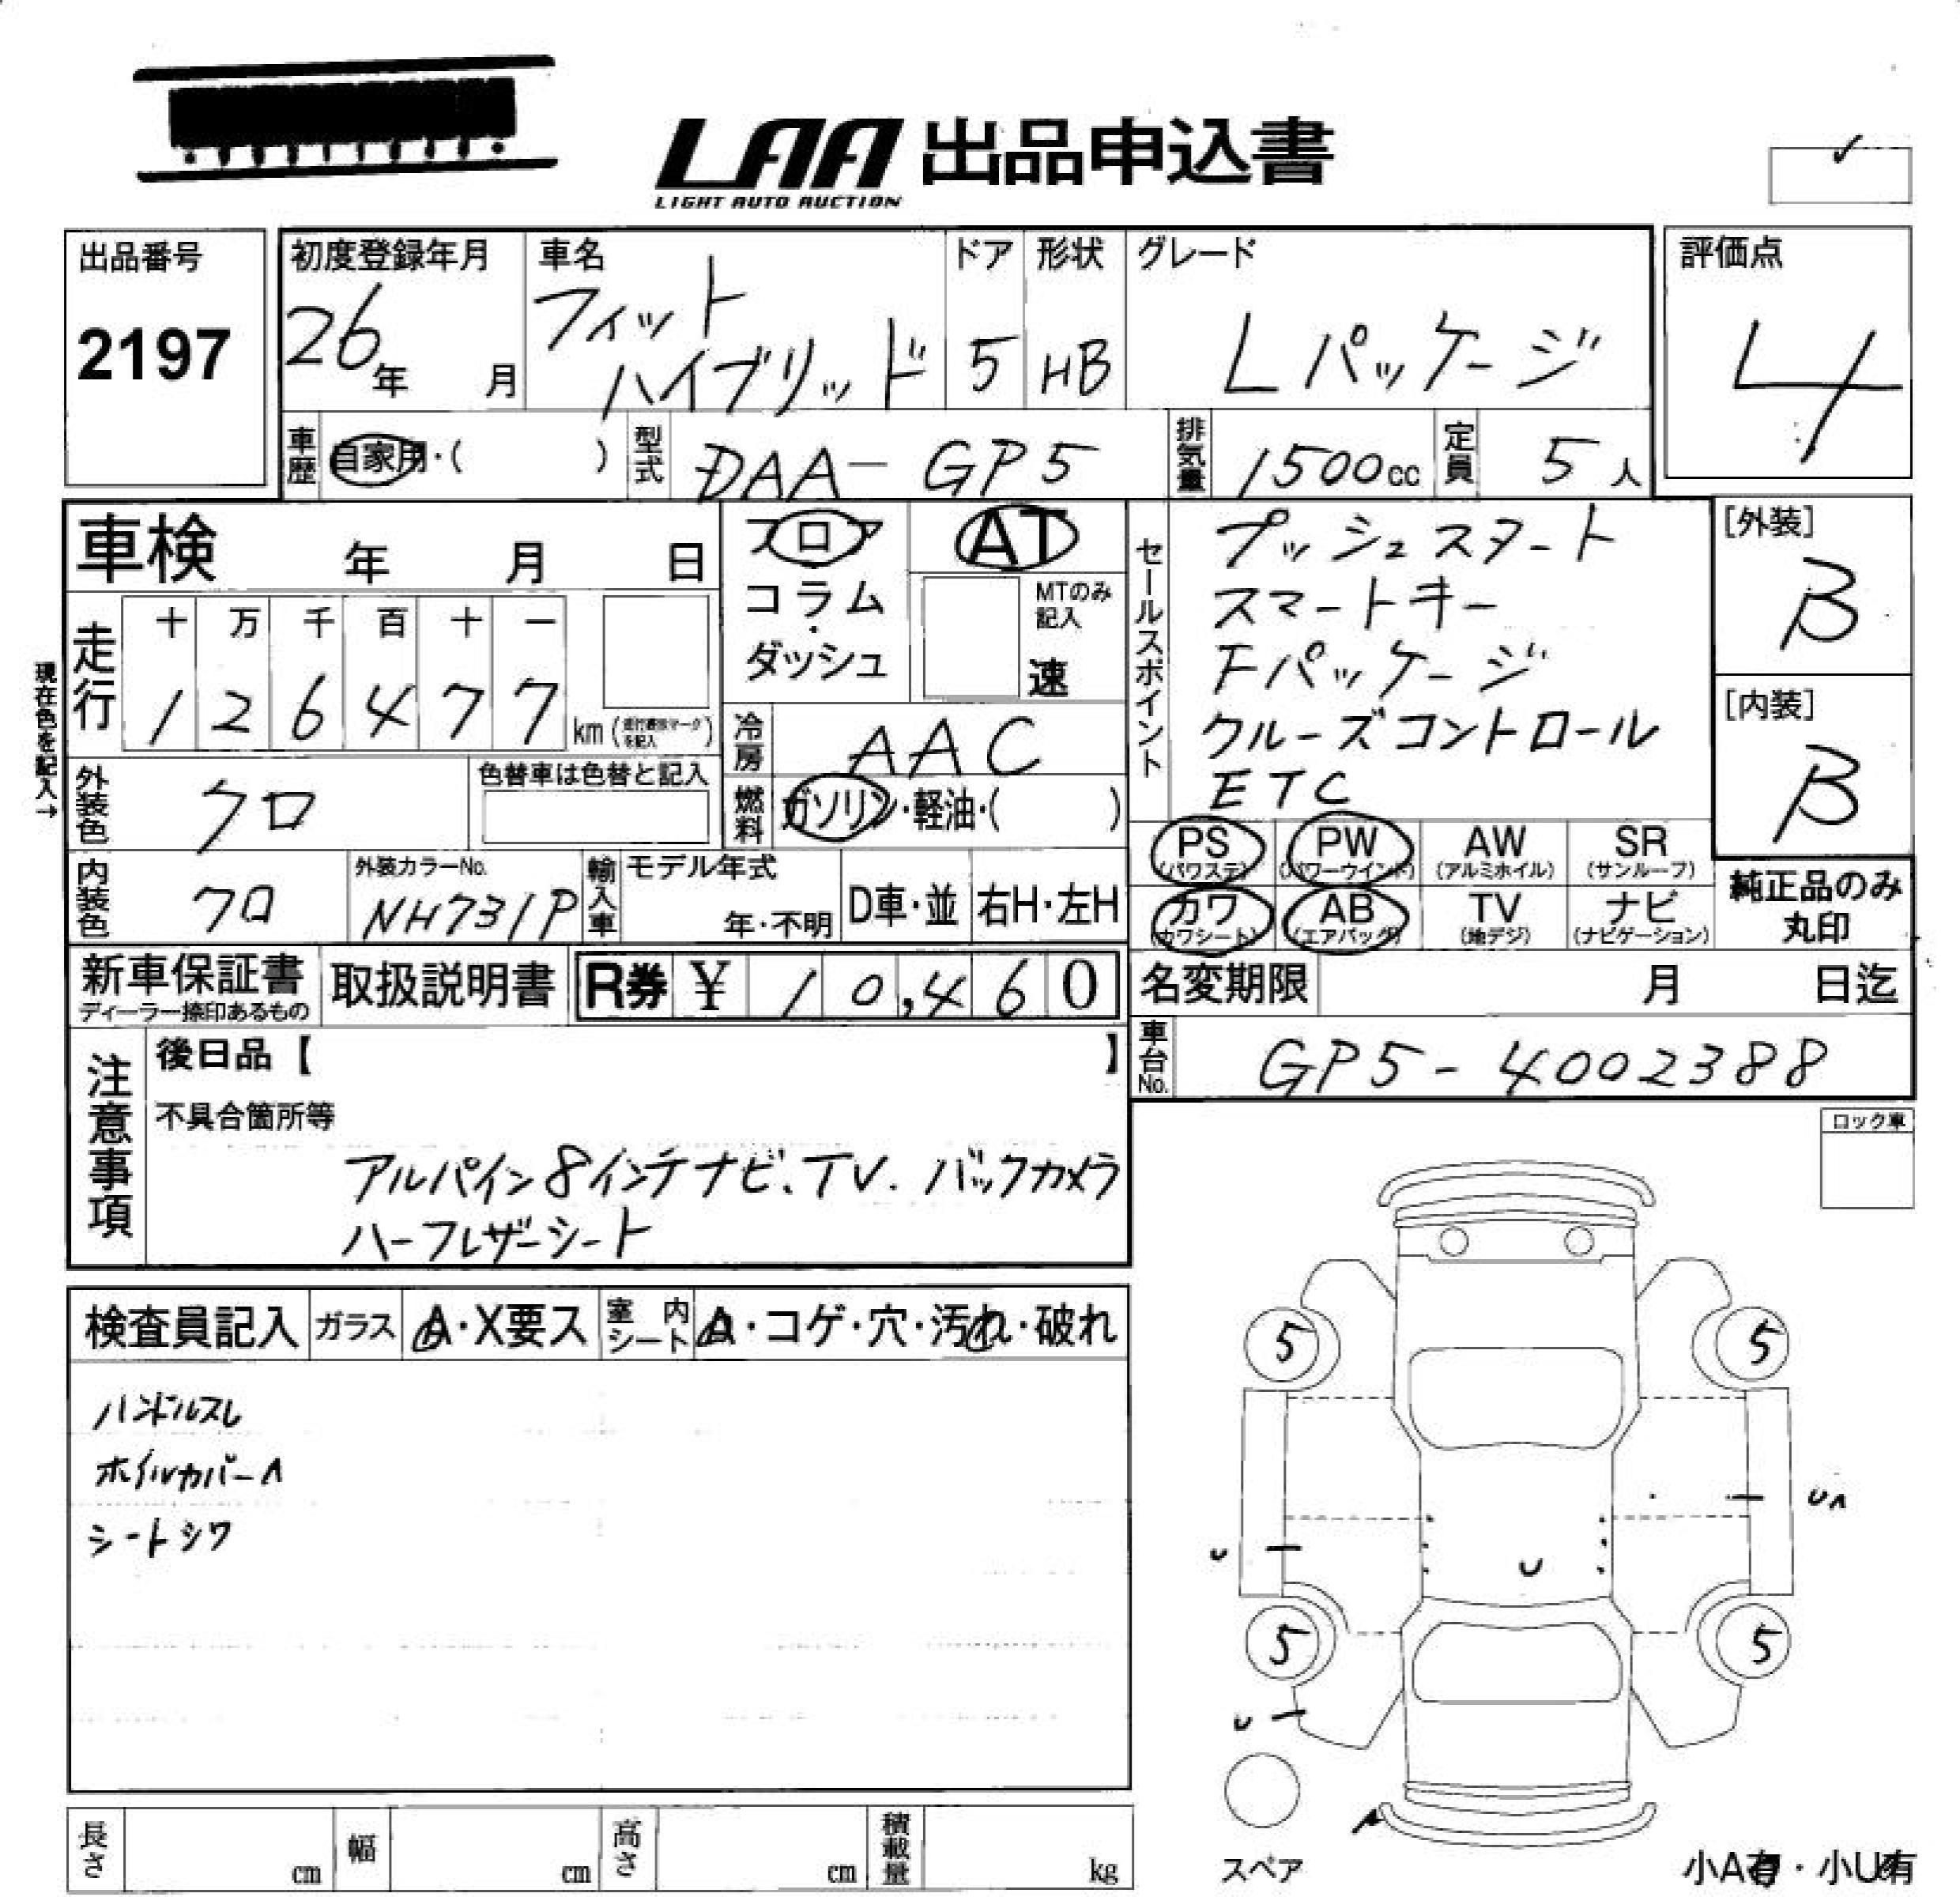 LAA 出品申込書
LIGHT AUTO AUCTION
出品番号
2197
初度登録年月
26年 月
車名
フィット
ハイブリッド
ドア
5
形状
HB
グレード
Lパッケージ
評価点
4
車歴
自家用・( )
型式
DAA-GP5
排気量
1500cc
定員
5人
車検 年 月 日
フロア
コラム
・
ダッシュ
AT
MTのみ
記入
速
セールスポイント
プッシュスタート
スマートキー
Fパッケージ
クルーズコントロール
ETC
[外装]
B
[内装]
B
現在色を記入→
走行
十 万 千 百 十 一
1 2 6 4 7 7
km
冷房
AAC
外装色
クロ
色替車は色替と記入
燃料
ガソリン・軽油・( )
PS
(パワステ)
PW
(パワーウインド)
AW
(アルミホイル)
SR
(サンルーフ)
カワ
(カワシート)
AB
(エアバック)
TV
(地デジ)
ナビ
(ナビゲーション)
純正品のみ
丸印
内装色
クロ
外装カラーNo.
NH731P
輸入車
モデル年式
年・不明
D車・並
右H・左H
新車保証書
ディーラー捺印あるもの
取扱説明書
R券 ¥ 10,460
名変期限 月 日迄
車台No.
GP5-4002388
注意事項
後日品【 】
不具合箇所等
アルパイン8インチナビ、TV、バックカメラ
ハーフレザーシート
ロック車
検査員記入
ガラス
A・X要ス
室内シート
A・コゲ・穴・汚れ・破れ
ハンドルスレ
ホイルカバーA
シートシワ
5 5
UA
U
U
5 5
U
A
スペア
小A有・小U有
長さ cm
幅 cm
高さ cm
積載量 kg